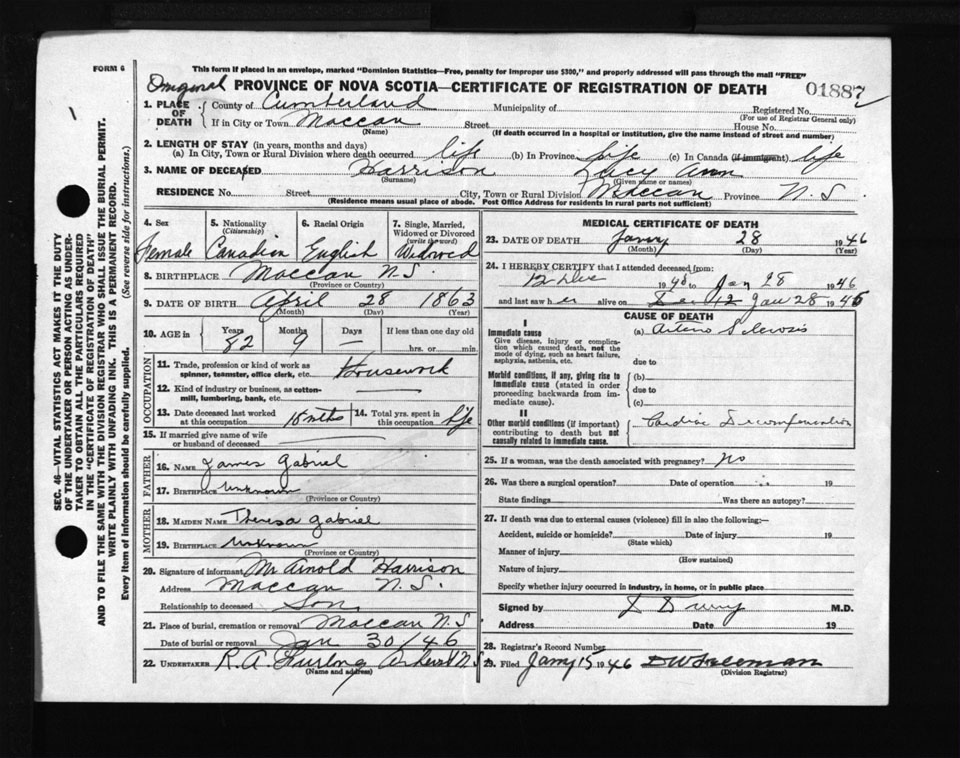 FORM 6
This form if placed in an envelope, marked "Dominion Statistics—Free, penalty for improper use $300," and properly addressed will pass through the mail "FREE"
PROVINCE OF NOVA SCOTIA—CERTIFICATE OF REGISTRATION OF DEATH
01887
1. PLACE OF DEATH
County of Cumberland Municipality of Registered No.
(For use of Registrar General only)
If in City or Town Maccan Street House No.
(Name) (If death occurred in a hospital or institution, give the name instead of street and number)
2. LENGTH OF STAY (in years, months and days)
(a) In City, Town or Rural Division where death occurred life (b) In Province life (c) In Canada (if immigrant) life
3. NAME OF DECEASED Harrison Lucy Ann
(Surname) (Given name or names)
RESIDENCE No. Street City, Town or Rural Division Maccan Province N.S
(Residence means usual place of abode. Post Office Address for residents in rural parts not sufficient)
4. Sex Female
5. Nationality (Citizenship) Canadian
6. Racial Origin English
7. Single, Married, Widowed or Divorced (write the word) Widowed
8. BIRTHPLACE Maccan N.S.
(Province or Country)
9. DATE OF BIRTH April 28 1863
(Month) (Day) (Year)
10. AGE in Years Months Days If less than one day old
82 9 — hrs. or min.
OCCUPATION
11. Trade, profession or kind of work as spinner, teamster, office clerk, etc. Housework
12. Kind of industry or business, as cotton-mill, lumbering, bank, etc.
13. Date deceased last worked at this occupation 18 mths
14. Total yrs. spent in this occupation life
15. If married give name of wife or husband of deceased
FATHER
16. NAME James Gabriel
17. BIRTHPLACE Unknown
(Province or Country)
MOTHER
18. MAIDEN NAME Theresa Gabriel
19. BIRTHPLACE Unknown
(Province or Country)
20. Signature of informant Mr Arnold Harrison
Address Maccan N.S.
Relationship to deceased Son
21. Place of burial, cremation or removal Maccan N.S
Date of burial or removal Jan 30/46
22. UNDERTAKER R.A. Furlong Amherst N.S
(Name and address)
MEDICAL CERTIFICATE OF DEATH
23. DATE OF DEATH 28 1946
(Month) (Day) (Year)
24. I HEREBY CERTIFY that I attended deceased from:
12 Dec 19 to Jan 28 1946
and last saw her alive on Jan 28 1946
CAUSE OF DEATH
I
Immediate cause
Give disease, injury or complication which caused death, not the mode of dying, such as heart failure, asphyxia, asthenia, etc.
(a) Arterio Sclerosis
due to
Morbid conditions, if any, giving rise to immediate cause (stated in order proceeding backwards from immediate cause).
(b)
due to
(c)
II
Other morbid conditions (if important) contributing to death but not causally related to immediate cause.
Cardiac Decompensation
25. If a woman, was the death associated with pregnancy? no
26. Was there a surgical operation? Date of operation 19
State findings Was there an autopsy?
27. If death was due to external causes (violence) fill in also the following:—
Accident, suicide or homicide? Date of injury 19
(State which)
Manner of injury
(How sustained)
Nature of injury
Specify whether injury occurred in industry, in home, or in public place
Signed by M.D.
Address Date 19
28. Registrar's Record Number
29. Filed 15 1946
(Division Registrar)
SEC. 46—VITAL STATISTICS ACT MAKES IT THE DUTY
OF THE UNDERTAKER OR PERSON ACTING AS UNDER-
TAKER TO OBTAIN ALL THE PARTICULARS REQUIRED
IN THE "CERTIFICATE OF REGISTRATION OF DEATH"
AND TO FILE THE SAME WITH THE DIVISION REGISTRAR WHO SHALL ISSUE THE BURIAL PERMIT.
WRITE PLAINLY WITH UNFADING INK. THIS IS A PERMANENT RECORD.
Every item of information should be carefully supplied. (See reverse side for instructions.)